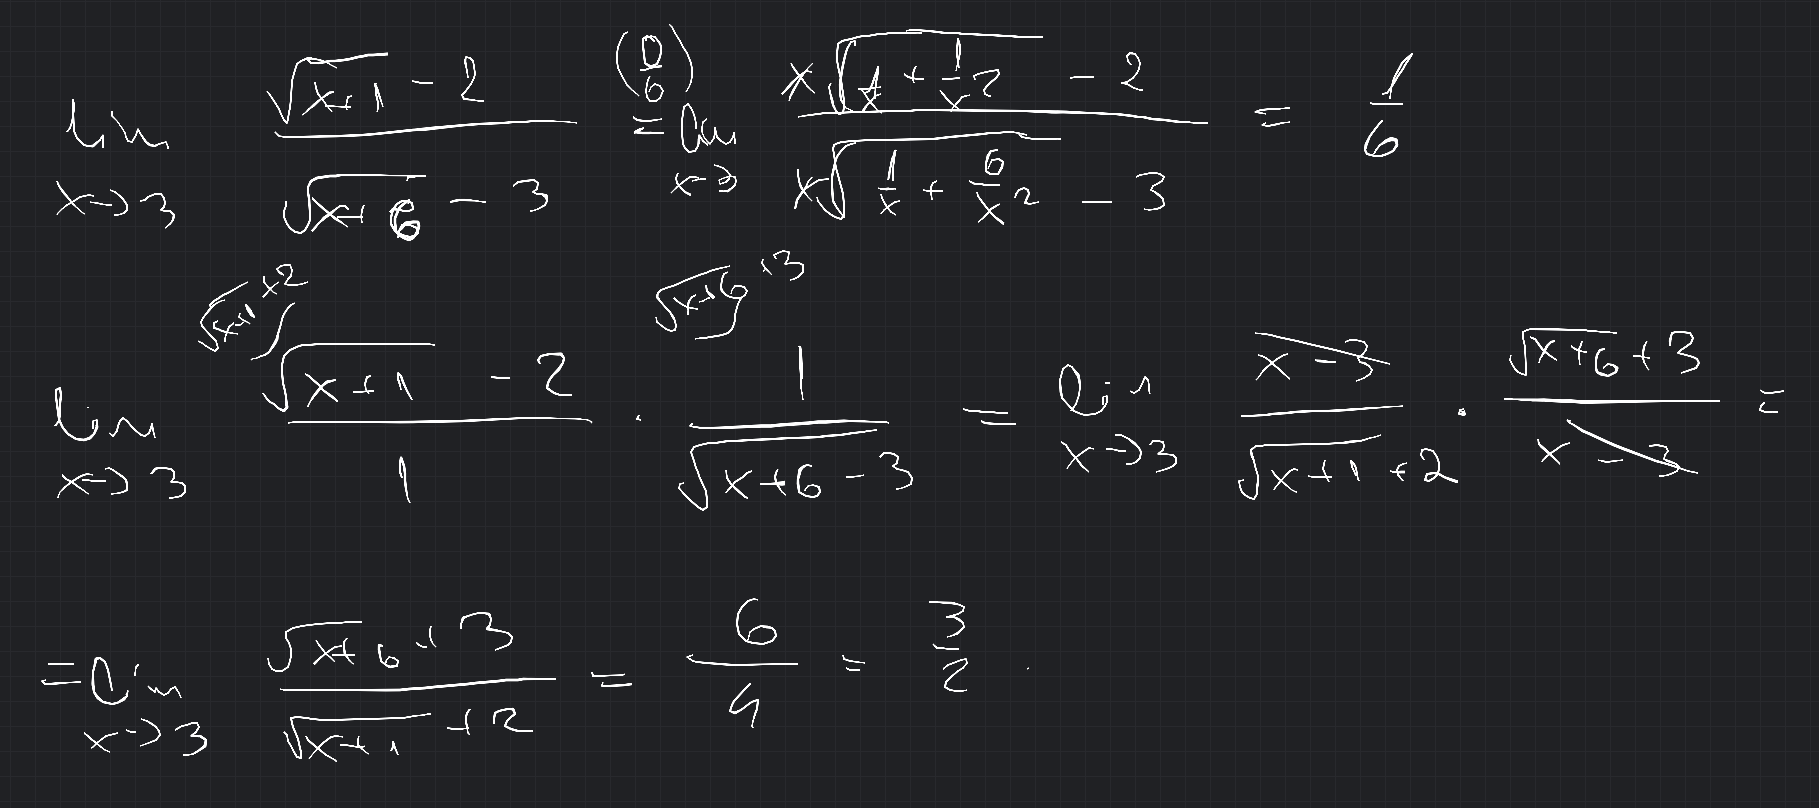 lim x→3 (√(x+1) - 2)/(√(x+6) - 3) (0/0) = lim x→3 (x√(1/x + 1/x²) - 2)/(x√(1/x + 6/x²) - 3) = 1/6
√(x+1) +2 √(x+6) +3
lim x→3 (√(x+1) - 2)/1 · 1/(√(x+6 - 3)) = lim x→3 (x - 3)/(√(x+1) + 2) · (√(x+6) + 3)/(x - 3) =
= lim x→3 (√(x+6) + 3)/(√(x+1) + 2) = 6/4 = 3/2